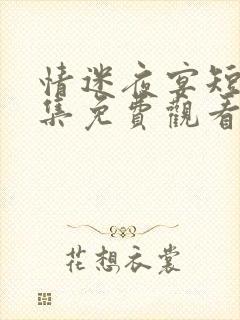 情迷夜宴短
集免費觀看
花想衣裳